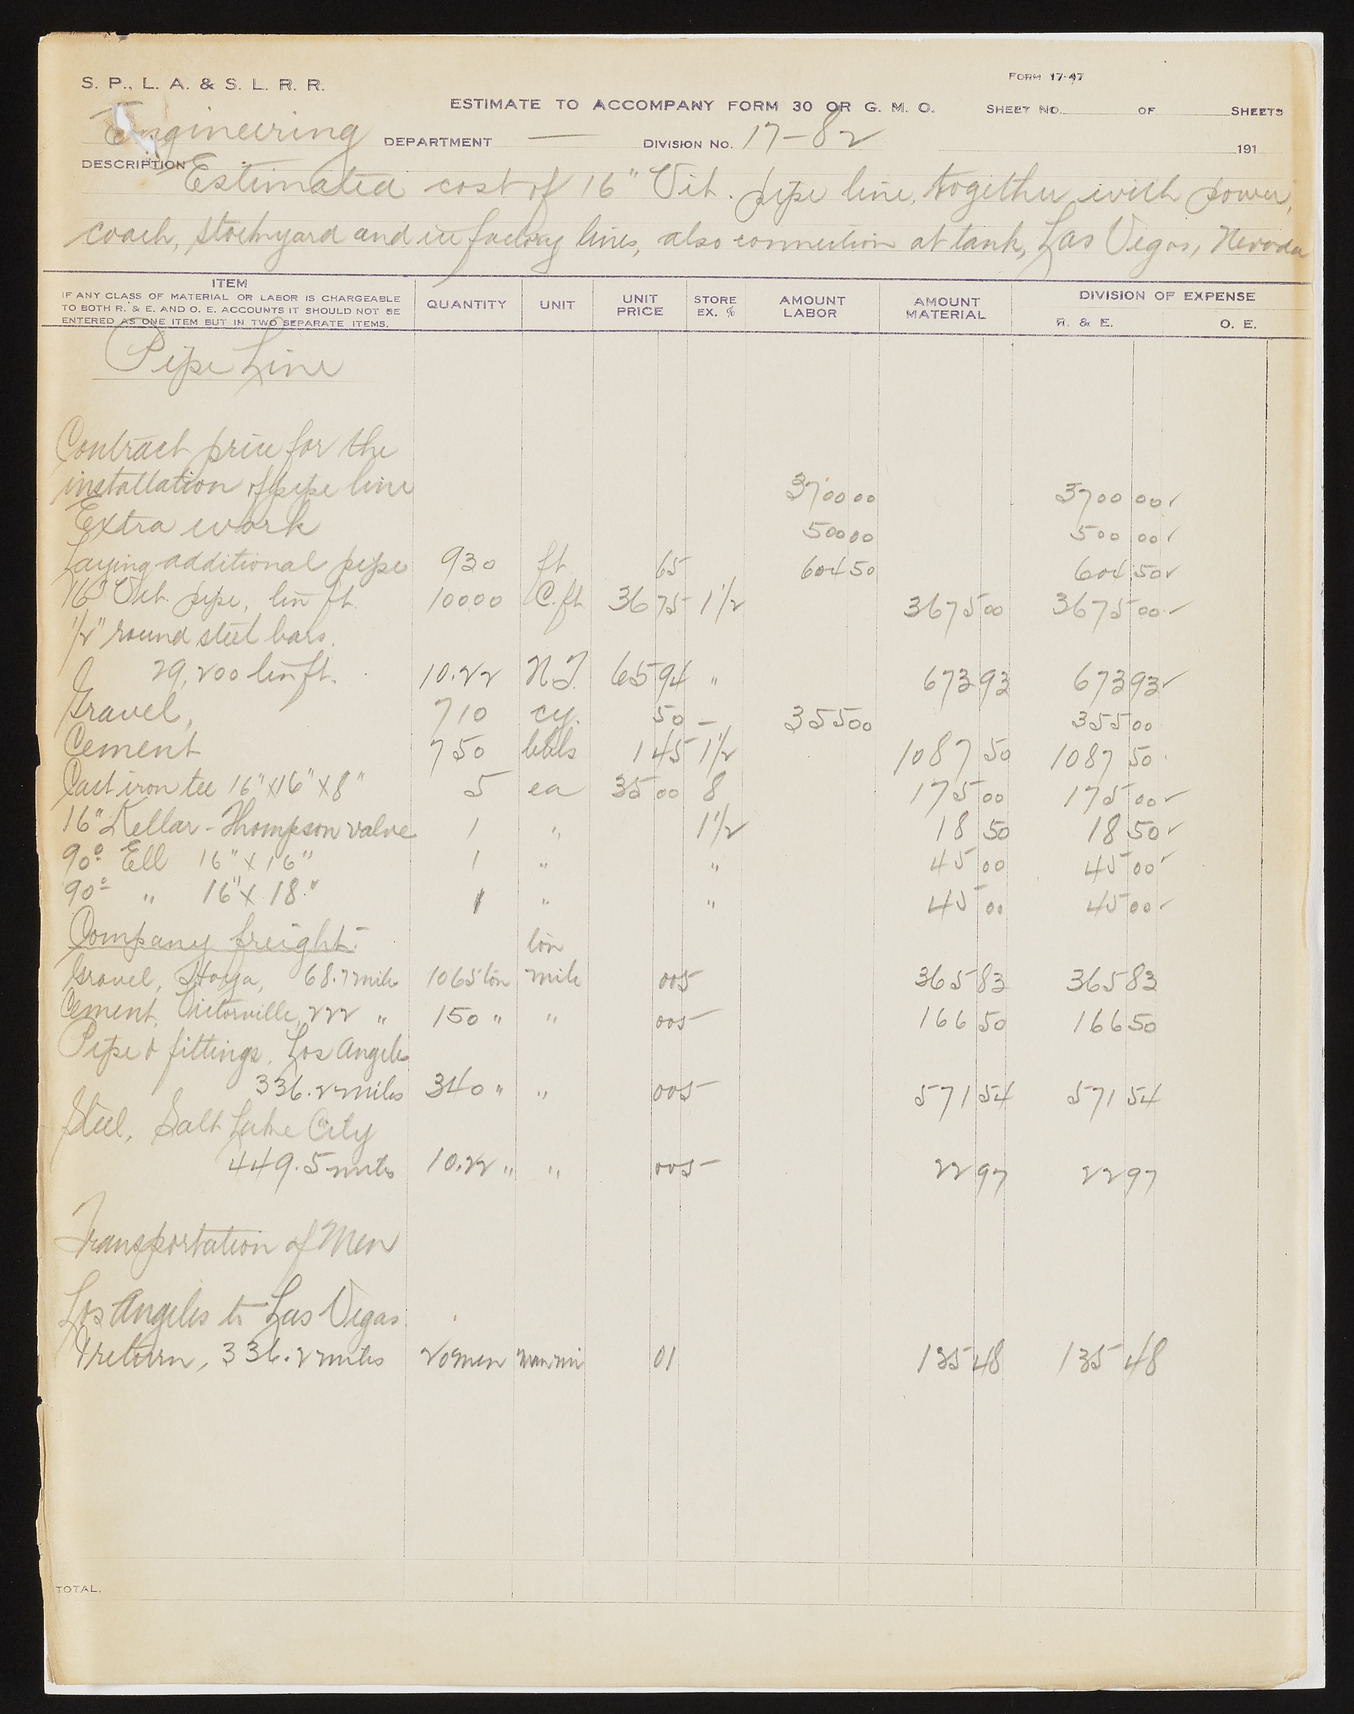 S. P., L. A. & S. L. R. R.
FORM 17-47
ESTIMATE TO ACCOMPANY FORM 30 OR G. M. O. SHEET NO. OF SHEETS
Engineering DEPARTMENT — DIVISION NO. 17-82 191
DESCRIPTION Estimated cost of 16" Vit. pipe line, together with power,
coach, stockyard and ice factory lines, also connection at tank, Las Vegas, Nevada
ITEM
IF ANY CLASS OF MATERIAL OR LABOR IS CHARGEABLE
TO BOTH R. & E. AND O. E. ACCOUNTS IT SHOULD NOT BE
ENTERED AS ONE ITEM BUT IN TWO SEPARATE ITEMS.
QUANTITY UNIT UNIT PRICE STORE EX. % AMOUNT LABOR AMOUNT MATERIAL DIVISION OF EXPENSE
R. & E. O. E.
Pipe Line
Contract price for the
installation of pipe line 3700 00 3700 00 ✓
Extra work 500 00 500 00 ✓
Laying additional pipe 930 ft. 65 604 50 604 50 ✓
16" Vit. pipe, lin ft. 10000 C.ft. 36 75 1 1/2 3675 00 3675 00 ✓
1/2" round steel bars.
29,200 lin ft. 10.22 N.T. 65 94 " 673 93 673 93 ✓
Gravel, 710 cy. 50 — 355 00 355 00
Cement 750 bbls 1 45 1 1/2 1087 50 1087 50
Cast iron tee 16"x16"x8" 5 ea 35 00 8 175 00 175 00 ✓
16" Kellar-Thompson valve 1 " 1 1/2 18 50 18 50 ✓
90° Ell 16" x 16" 1 " " 45 00 45 00 ✓
90° " 16" x 18" 1 " " 45 00 45 00 ✓
Company freight. ton
Gravel, 68.7 miles 1065 ton mile 005 365 83 365 83
Cement, Victorville, 222 " 150 " " 005 166 50 166 50
Pipe & fittings, Los Angeles
336.2 miles 340 " " 005 571 54 571 54
Steel, Salt Lake City
449.5 miles 10.22 " " 005 22 97 22 97
Transportation of Men
Los Angeles to Las Vegas
& return, 336.2 miles 20 men man mi 01 135 48 135 48
TOTAL.